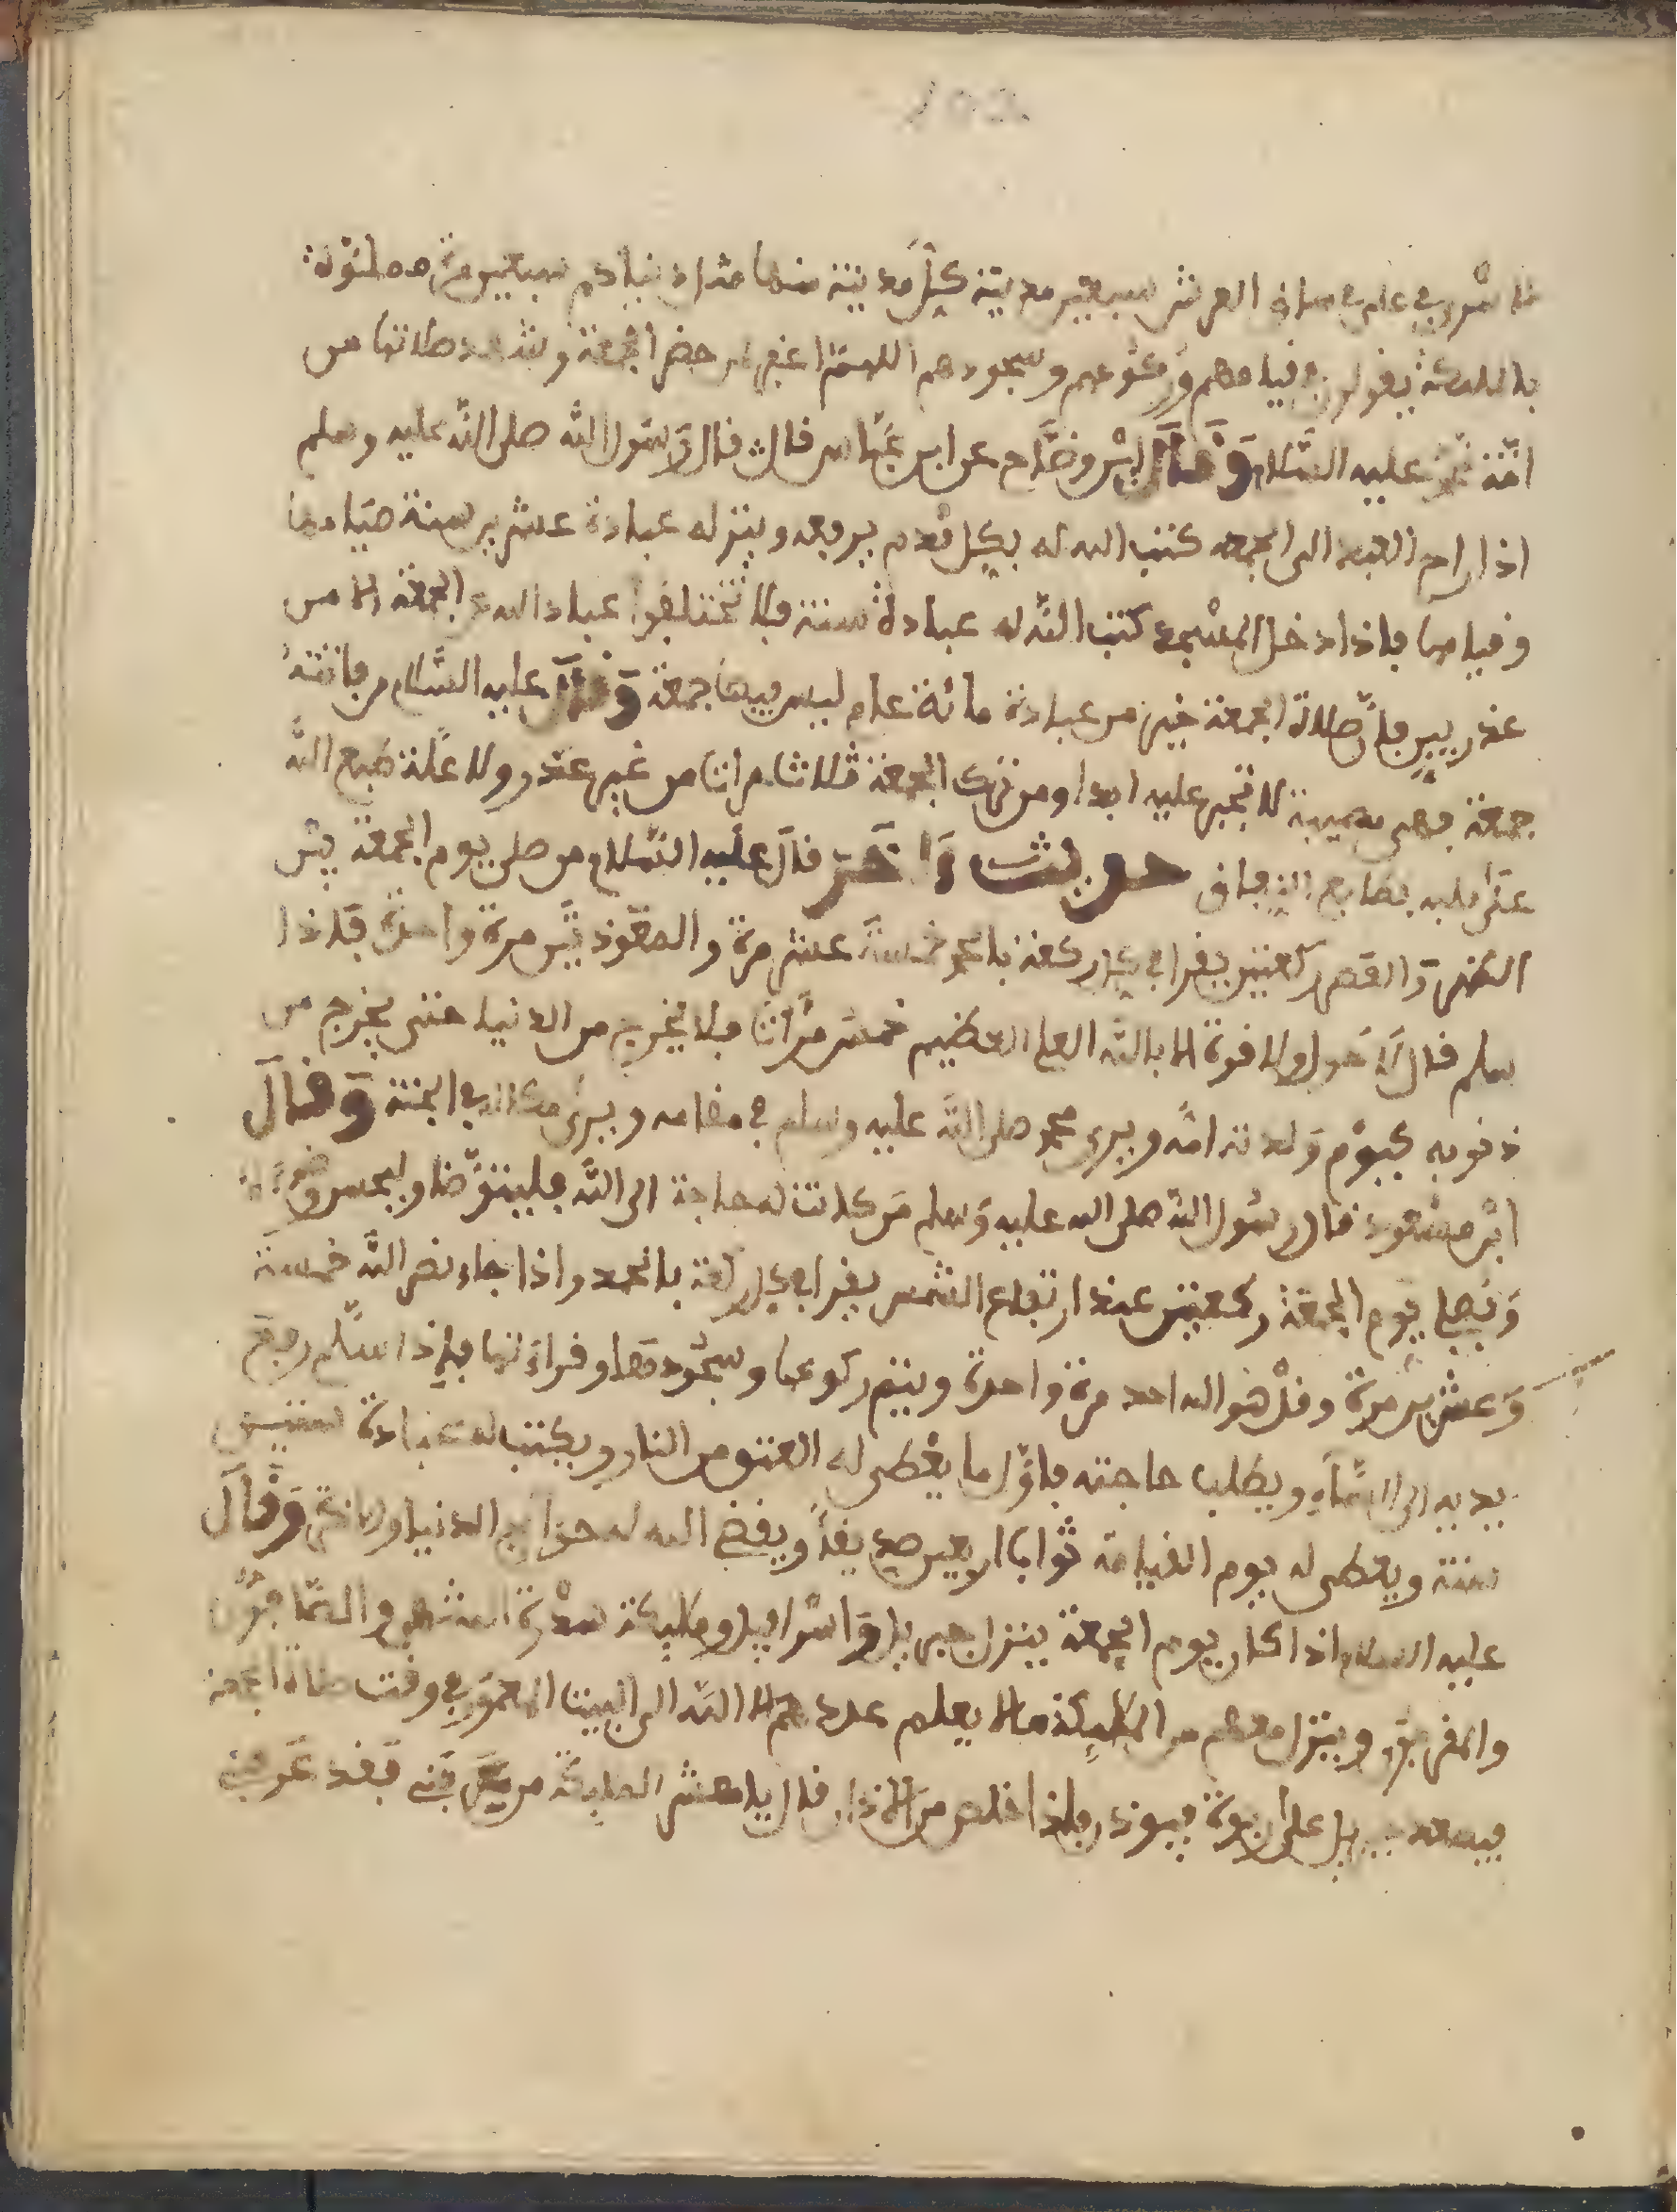 العرش سبعين مدينة كل مدينة منها مثل دنياكم سبعين مرة مملوءة
بالملائكة يقولون في قيامهم وركوعهم وسجودهم اللهم اغفر لمن حضر الجمعة وشهد صلاتها من
امّة محمد عليه السّلام وَقَالَ ابْن وضّاح عن ابن عبّاس قال قال رَسُول اللّه صلى اللّه عليه وسلم
اذا راح العبد الى الجمعة كتب الله له بكل قدم يرفعه وينزله عبادة عشرين سنة صيامها
وقيامها فاذا دخل المسْجد كتب اللّه له عبادة سنة فلا تختلفوا عباد الله عن الجمعة الا من
عذر بيّن فانّ صلاة الجمعة خير من عبادة مائة عام ليس فيها جمعة وَقَالَ عليه السّلام من فاتته
جمعة فهي مصيبة لا تجبر عليه ابدا ومن ترك الجمعة ثلاث مرات من غير عذر ولا علّة طبع اللّه
على قلبه بطابع النفاق حديث ءاخَر قالَ عليه السّلام من صلى يوم الجمعة بيْن
الظهر وَالعصر ركعتين يقرا في كل ركعة بالحمد خمسة عشر مرة والمعوّذتيْن مرة واحدة فَاذا
سلم قال لَا حَول ولا قوة الا باللّه العلي العظيم خمس مرّات فلا يخرج من الدنيا حتى يخرج من
ذنوبه كيوْم وَلدته امّه ويرى محمد صلى اللّه عليه وسلم في مقامه ويرى مكانه في الجنة وَقَالَ
ابْن مسْعود قال رسُول اللّه صلى الله عليه وَسلم مَن كانت له حاجة الى اللّه فليتوَضّا وليحسن وضوءه
وَيُصلي يوْم الجمعة ركعتين عند ارتفاع الشمس يقرا في كل ركعة بالحمد واذا جاء نصر اللّه خمسة
وَعشرين مرة وقلْ هو الله احد مرة واحدة ويتم ركوعها وسجُودهَا وقراءتها فإذا سلّم رفع
يديه الى السّماءِ ويطلب حاجته فاوّل ما يعْطى له العتق من النار ويكتب له عبادة ستين
سنة ويعطى له يوم القيامة ثوابا اربعين صديقاً ويقضي الله له حوائج الدنيا والاخرة وَقَالَ
عليه السلام اذا كان يوم الجمعة ينزل جبريل وَاسْرافيل وملئكة سدْرة المنتهى والصّافّون
والمقربون وينزل معهم من الملئكة ما لا يعلم عددهم الا اللّه الى البيت المعمور في وقت صلاة الجمعة
فيصعد جبريل على ربوة فيوذن فإذا خلص من الاذان قال يا معشر الملئكة من يعَرفني فَقد عَرفني